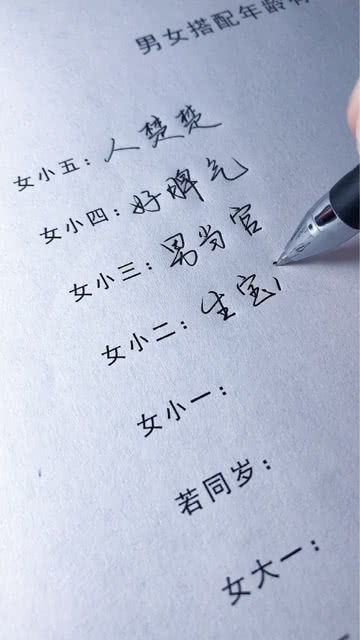 男女搭配年龄
女小五：人楚楚
女小四：好脾气
女小三：男当官
女小二：生宝
女小一：
若同岁：
女大一：